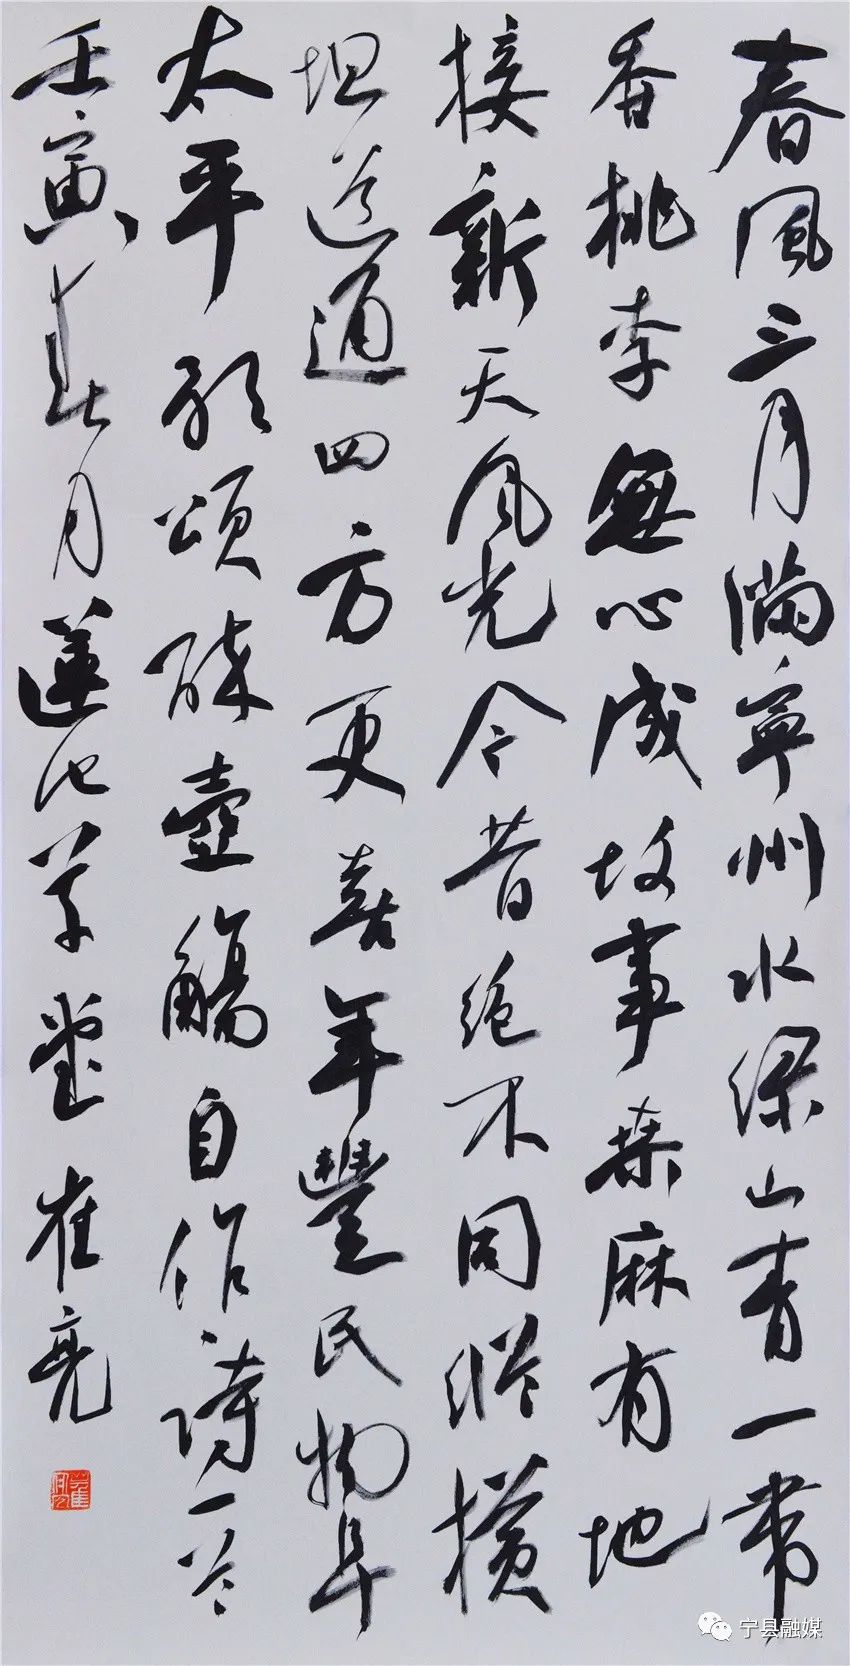 春風三月滿寧州水綠山青一帶
香桃李無心成故事桑麻有地
接新天風光今昔絕不同縱橫
坦道通四方更喜年豐民物阜
太平歌頌醉壺觴自作詩一首
壬寅春月蓮池草堂崔亮
宁县融媒